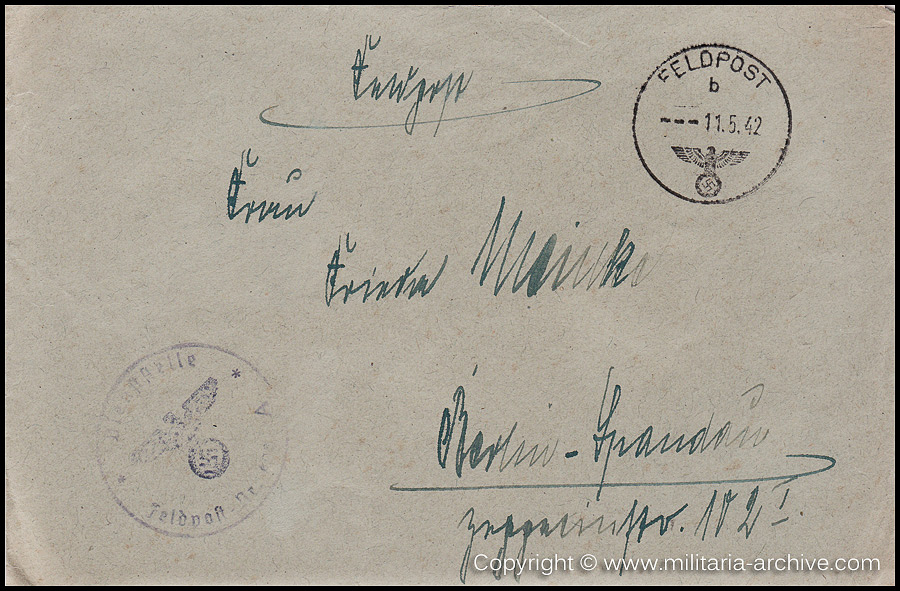 Feldpost
FELDPOST
b
---11.5.42
Frau
Frieda Meincke
Dienststelle
* *
Feldpost-Nr.
Berlin-Spandau
Zeppelinstr. 102 I.
Copyright © www.militaria-archive.com